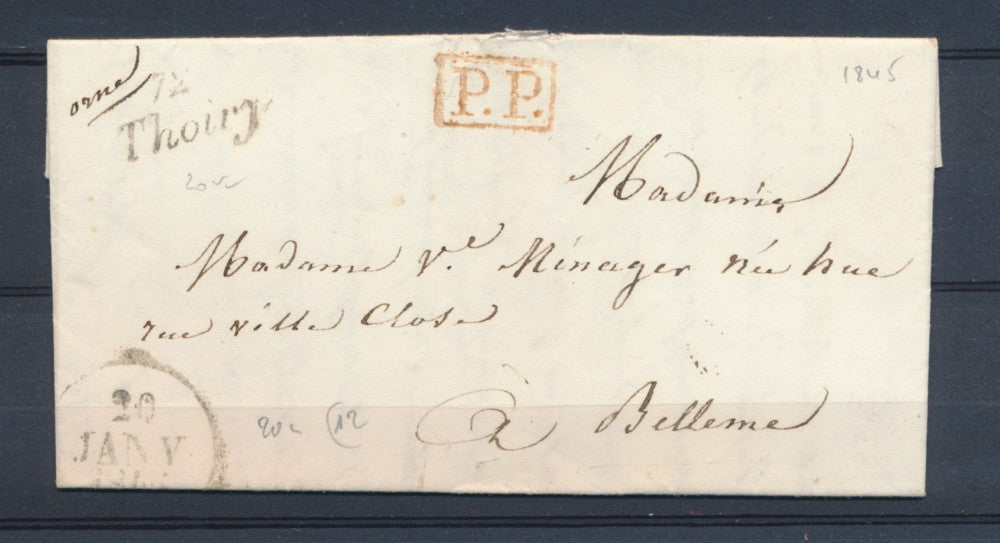 orne
72
Thoiry
P.P.
1845
Madame
Madame Ve. Ménager née hue
rue ville Close
à Belleme
20
JANV
20c 12